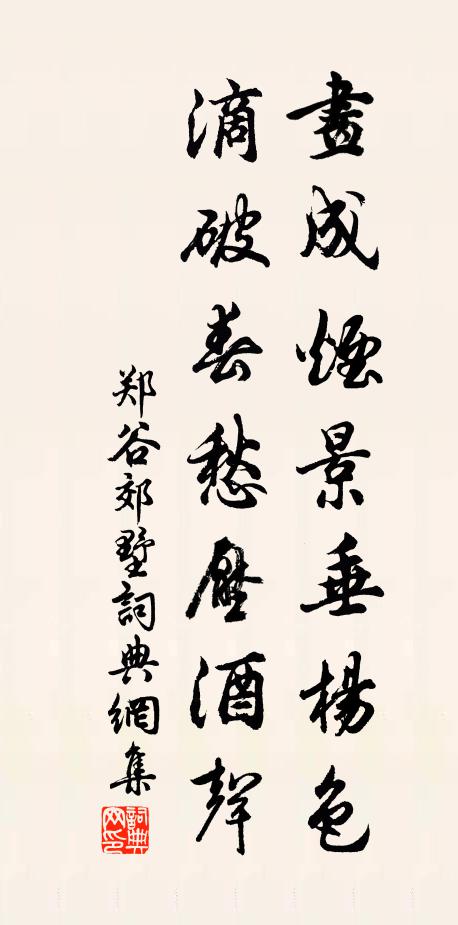 畫成煙景垂楊色
滴破春愁壓酒聲
郑谷郊墅詞典網集
詞典网印